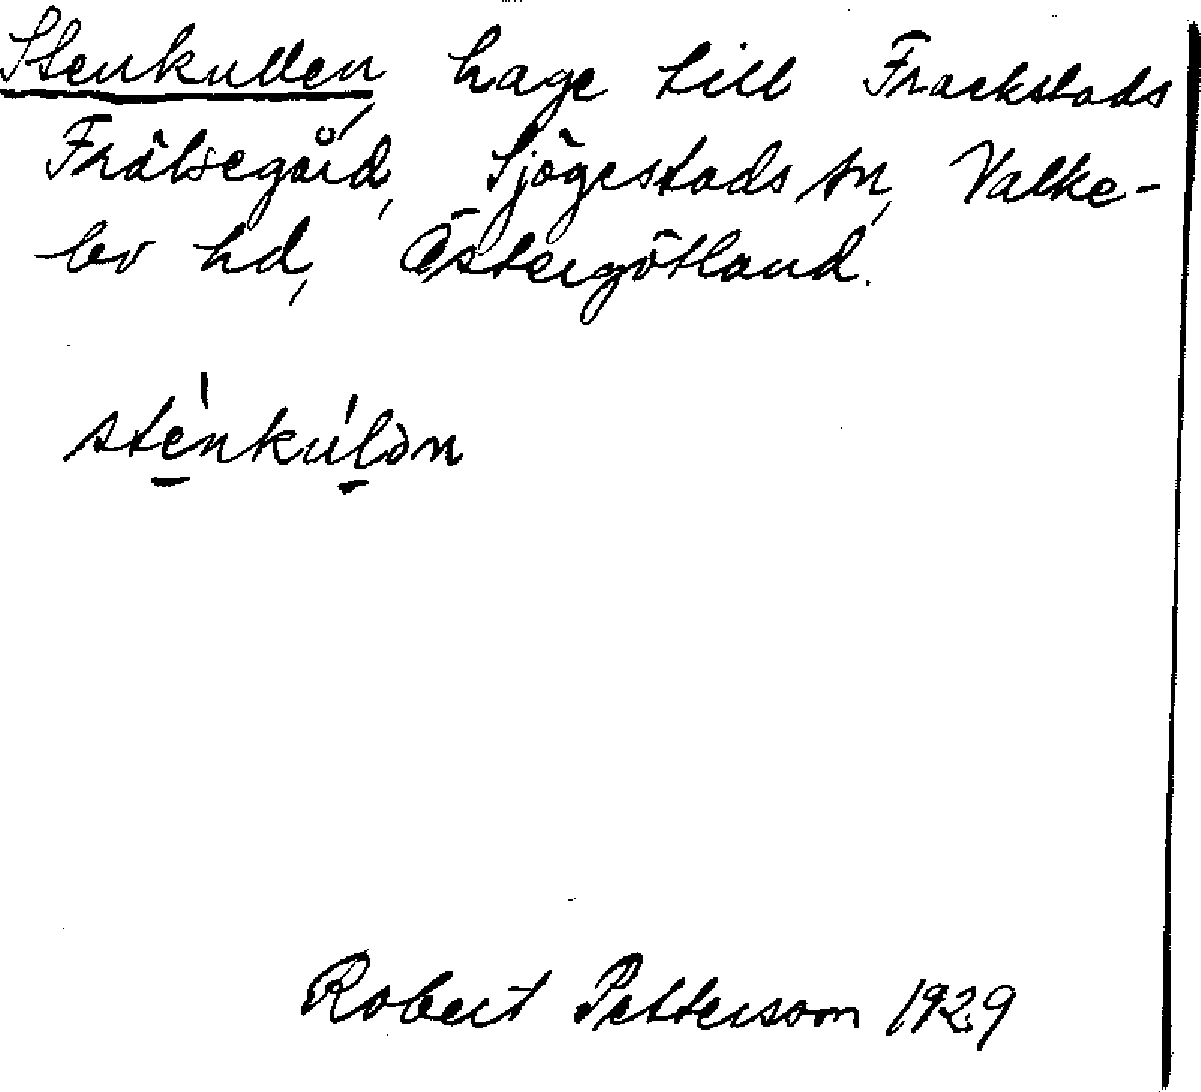 Stenkullen, hage till Frackstads
Frälsegård, Sjögestads sn, Valke-
bo hd, Östergötland.
stènkúlən
Robert Pettersson 1929